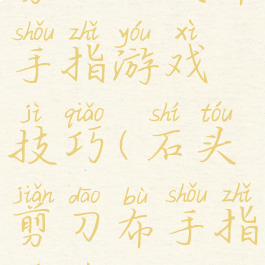 shǒu zhǐ yóu xì
手指游戏
jì qiǎo shí tóu
技巧(石头
jiǎn dāo bù shǒu zhǐ
剪刀布手指